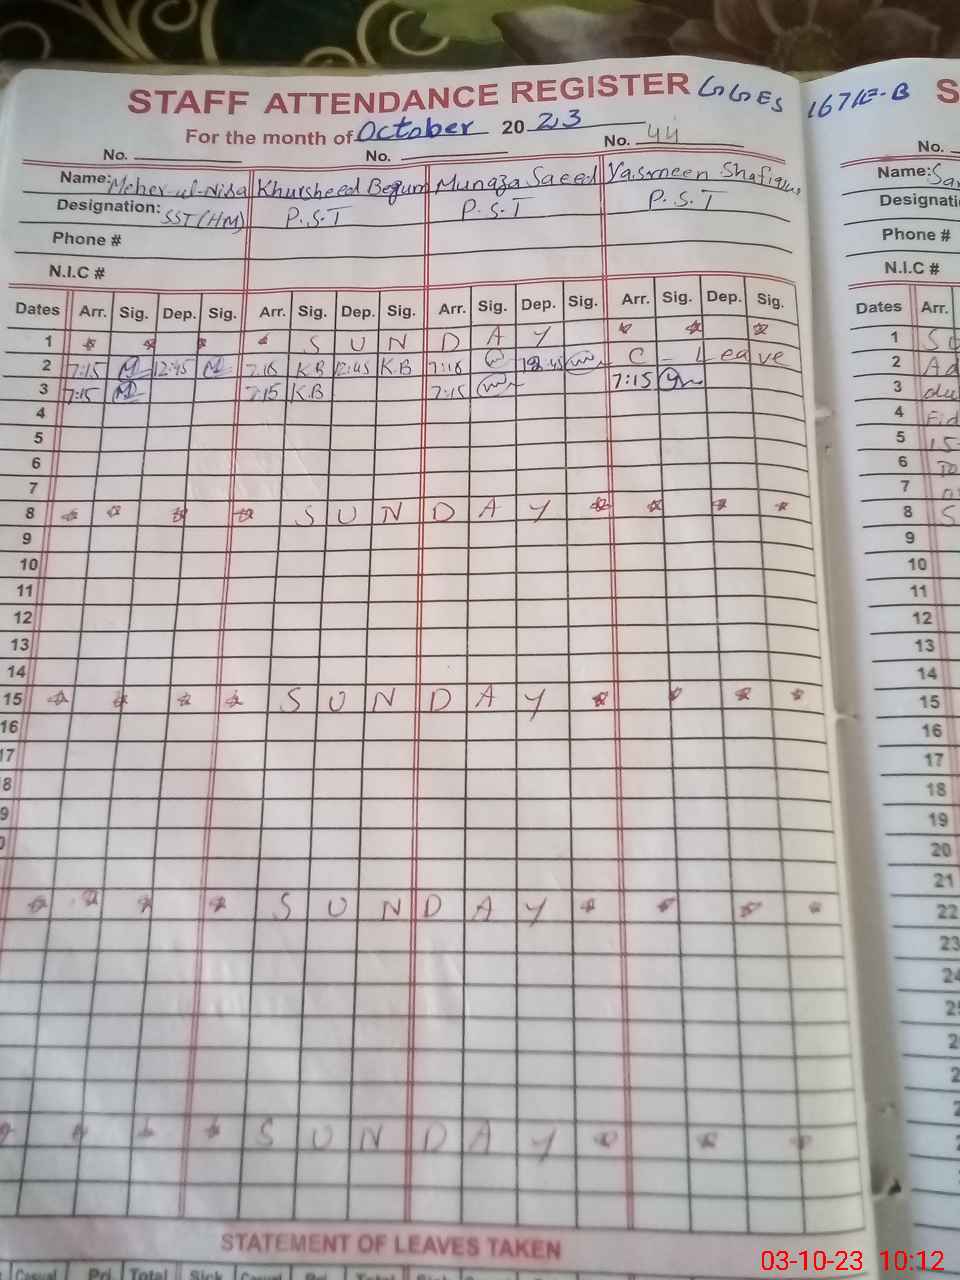 STAFF ATTENDANCE REGISTER GGES 167/E-B
For the month of October 2023
No. No. No. 44
Name: Meher-ul-Nisa Khursheed Begum Munaza Saeed Yasmeen Shafique
Designation: SST (HM) P.S.T P.S.T P.S.T
Phone #
N.I.C #
Dates Arr. Sig. Dep. Sig. Arr. Sig. Dep. Sig. Arr. Sig. Dep. Sig. Arr. Sig. Dep. Sig.
1 S U N D A Y
2 7:15 12:45 7:15 K.B 12:45 K.B 7:15 12:45 C - Leave
3 7:15 7:15 K.B 7:15 7:15
4
5
6
7
8 S U N D A Y
9
10
11
12
13
14
15 S U N D A Y
16
17
8
9
0
S U N D A Y
S U N D A Y
STATEMENT OF LEAVES TAKEN
Casual Pri Total Sick Casual Pri Total Sick
S
No.
Name: San
Designati
Phone #
N.I.C #
Dates Arr.
1 S
2 Ad
3
4
5 15
6 To
7
8 S
9
10
11
12
13
14
15
16
17
18
19
20
21
22
23
24
2
2
2
2
03-10-23 10:12